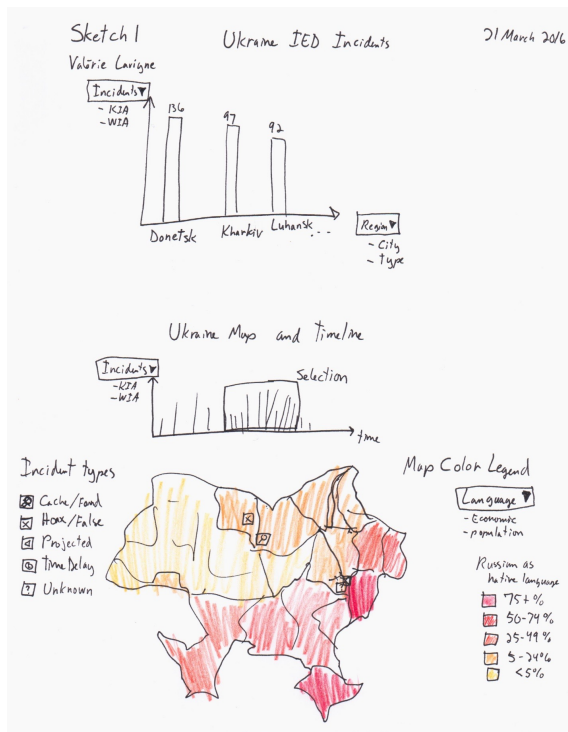 Sketch 1
Ukraine IED Incidents
21 March 2016
Valérie Lavigne
Incidents ▼
- KIA
- WIA
136
97
92
Donetsk
Kharkiv
Luhansk
...
Region ▼
- City
- type
Ukraine Map and Timeline
Incidents ▼
- KIA
- WIA
Selection
time
Incident types
Cache/Found
Hoax/False
Projected
Time Delay
? Unknown
Map Color Legend
Language ▼
- Economic
- population
Russian as
native language
75+%
50-74%
25-49%
5-24%
<5%